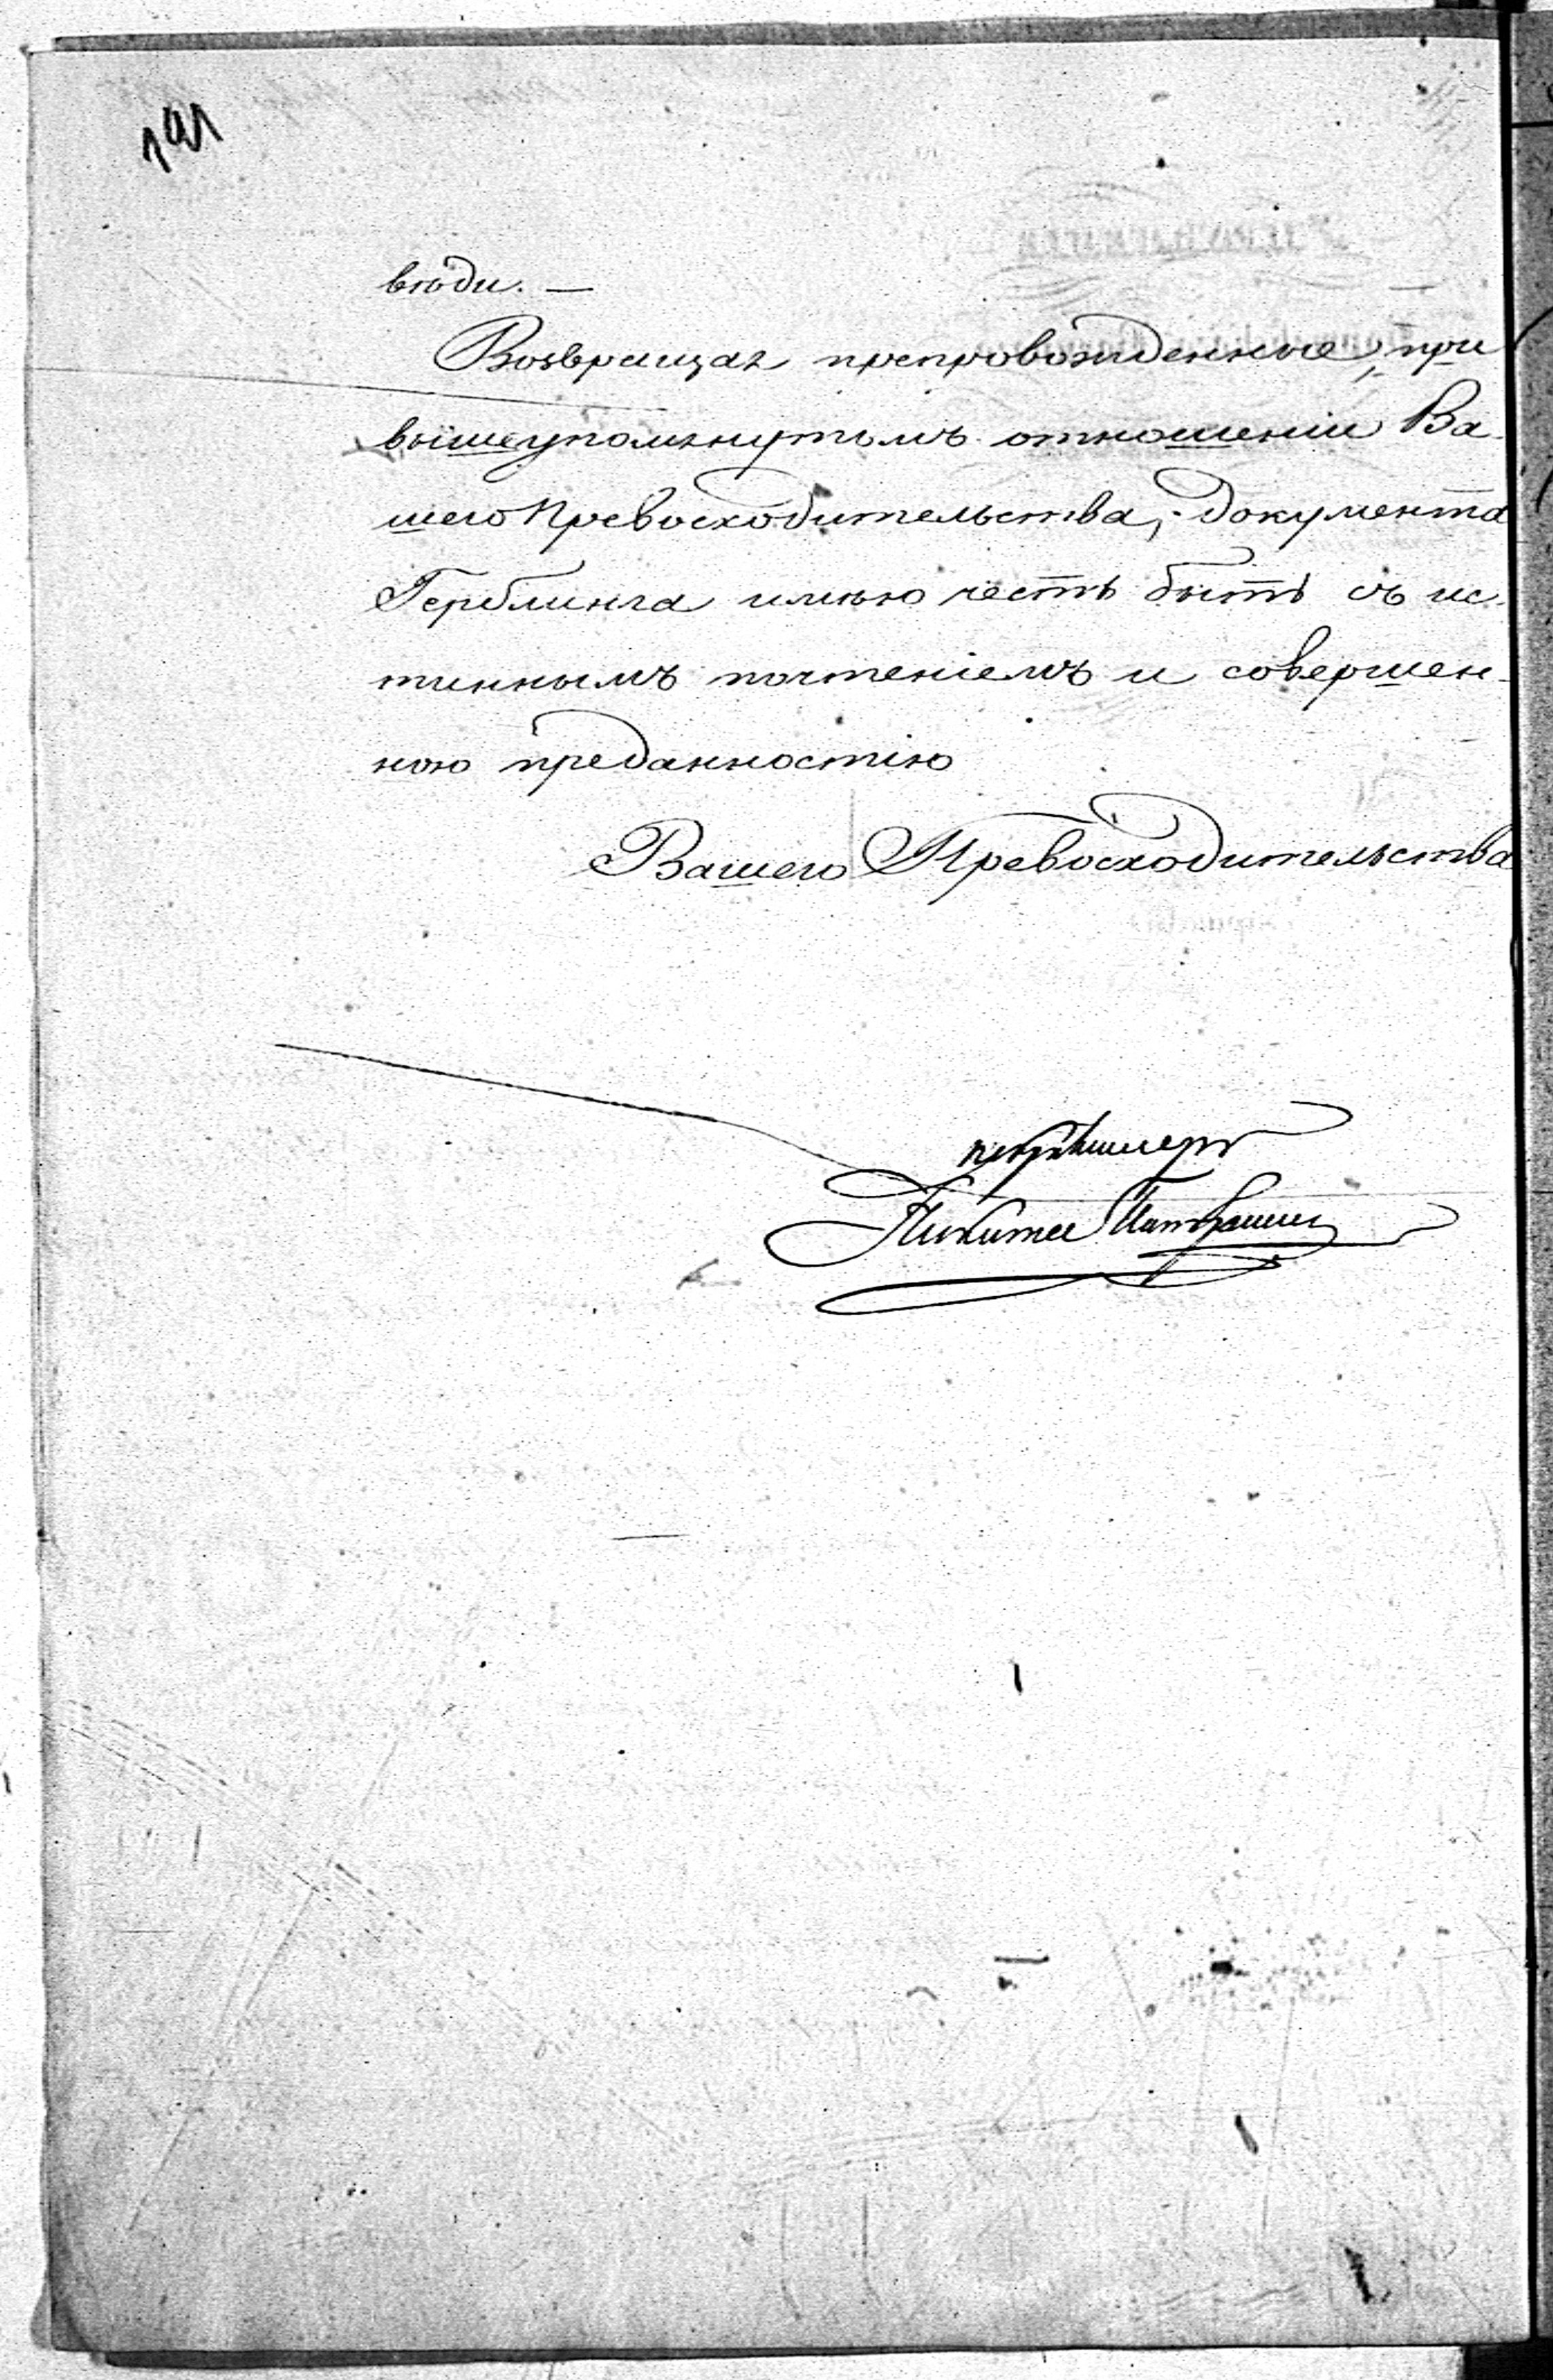 вюди. —
Возвращая препровожденные, при
вышеупомянутомъ отношеніи Ва-
шего Превосходительства, документа
Герблинга имѣю честь быть съ ис-
тиннымъ почтеніемъ и совершен-
ною преданностію
Вашего Превосходительства